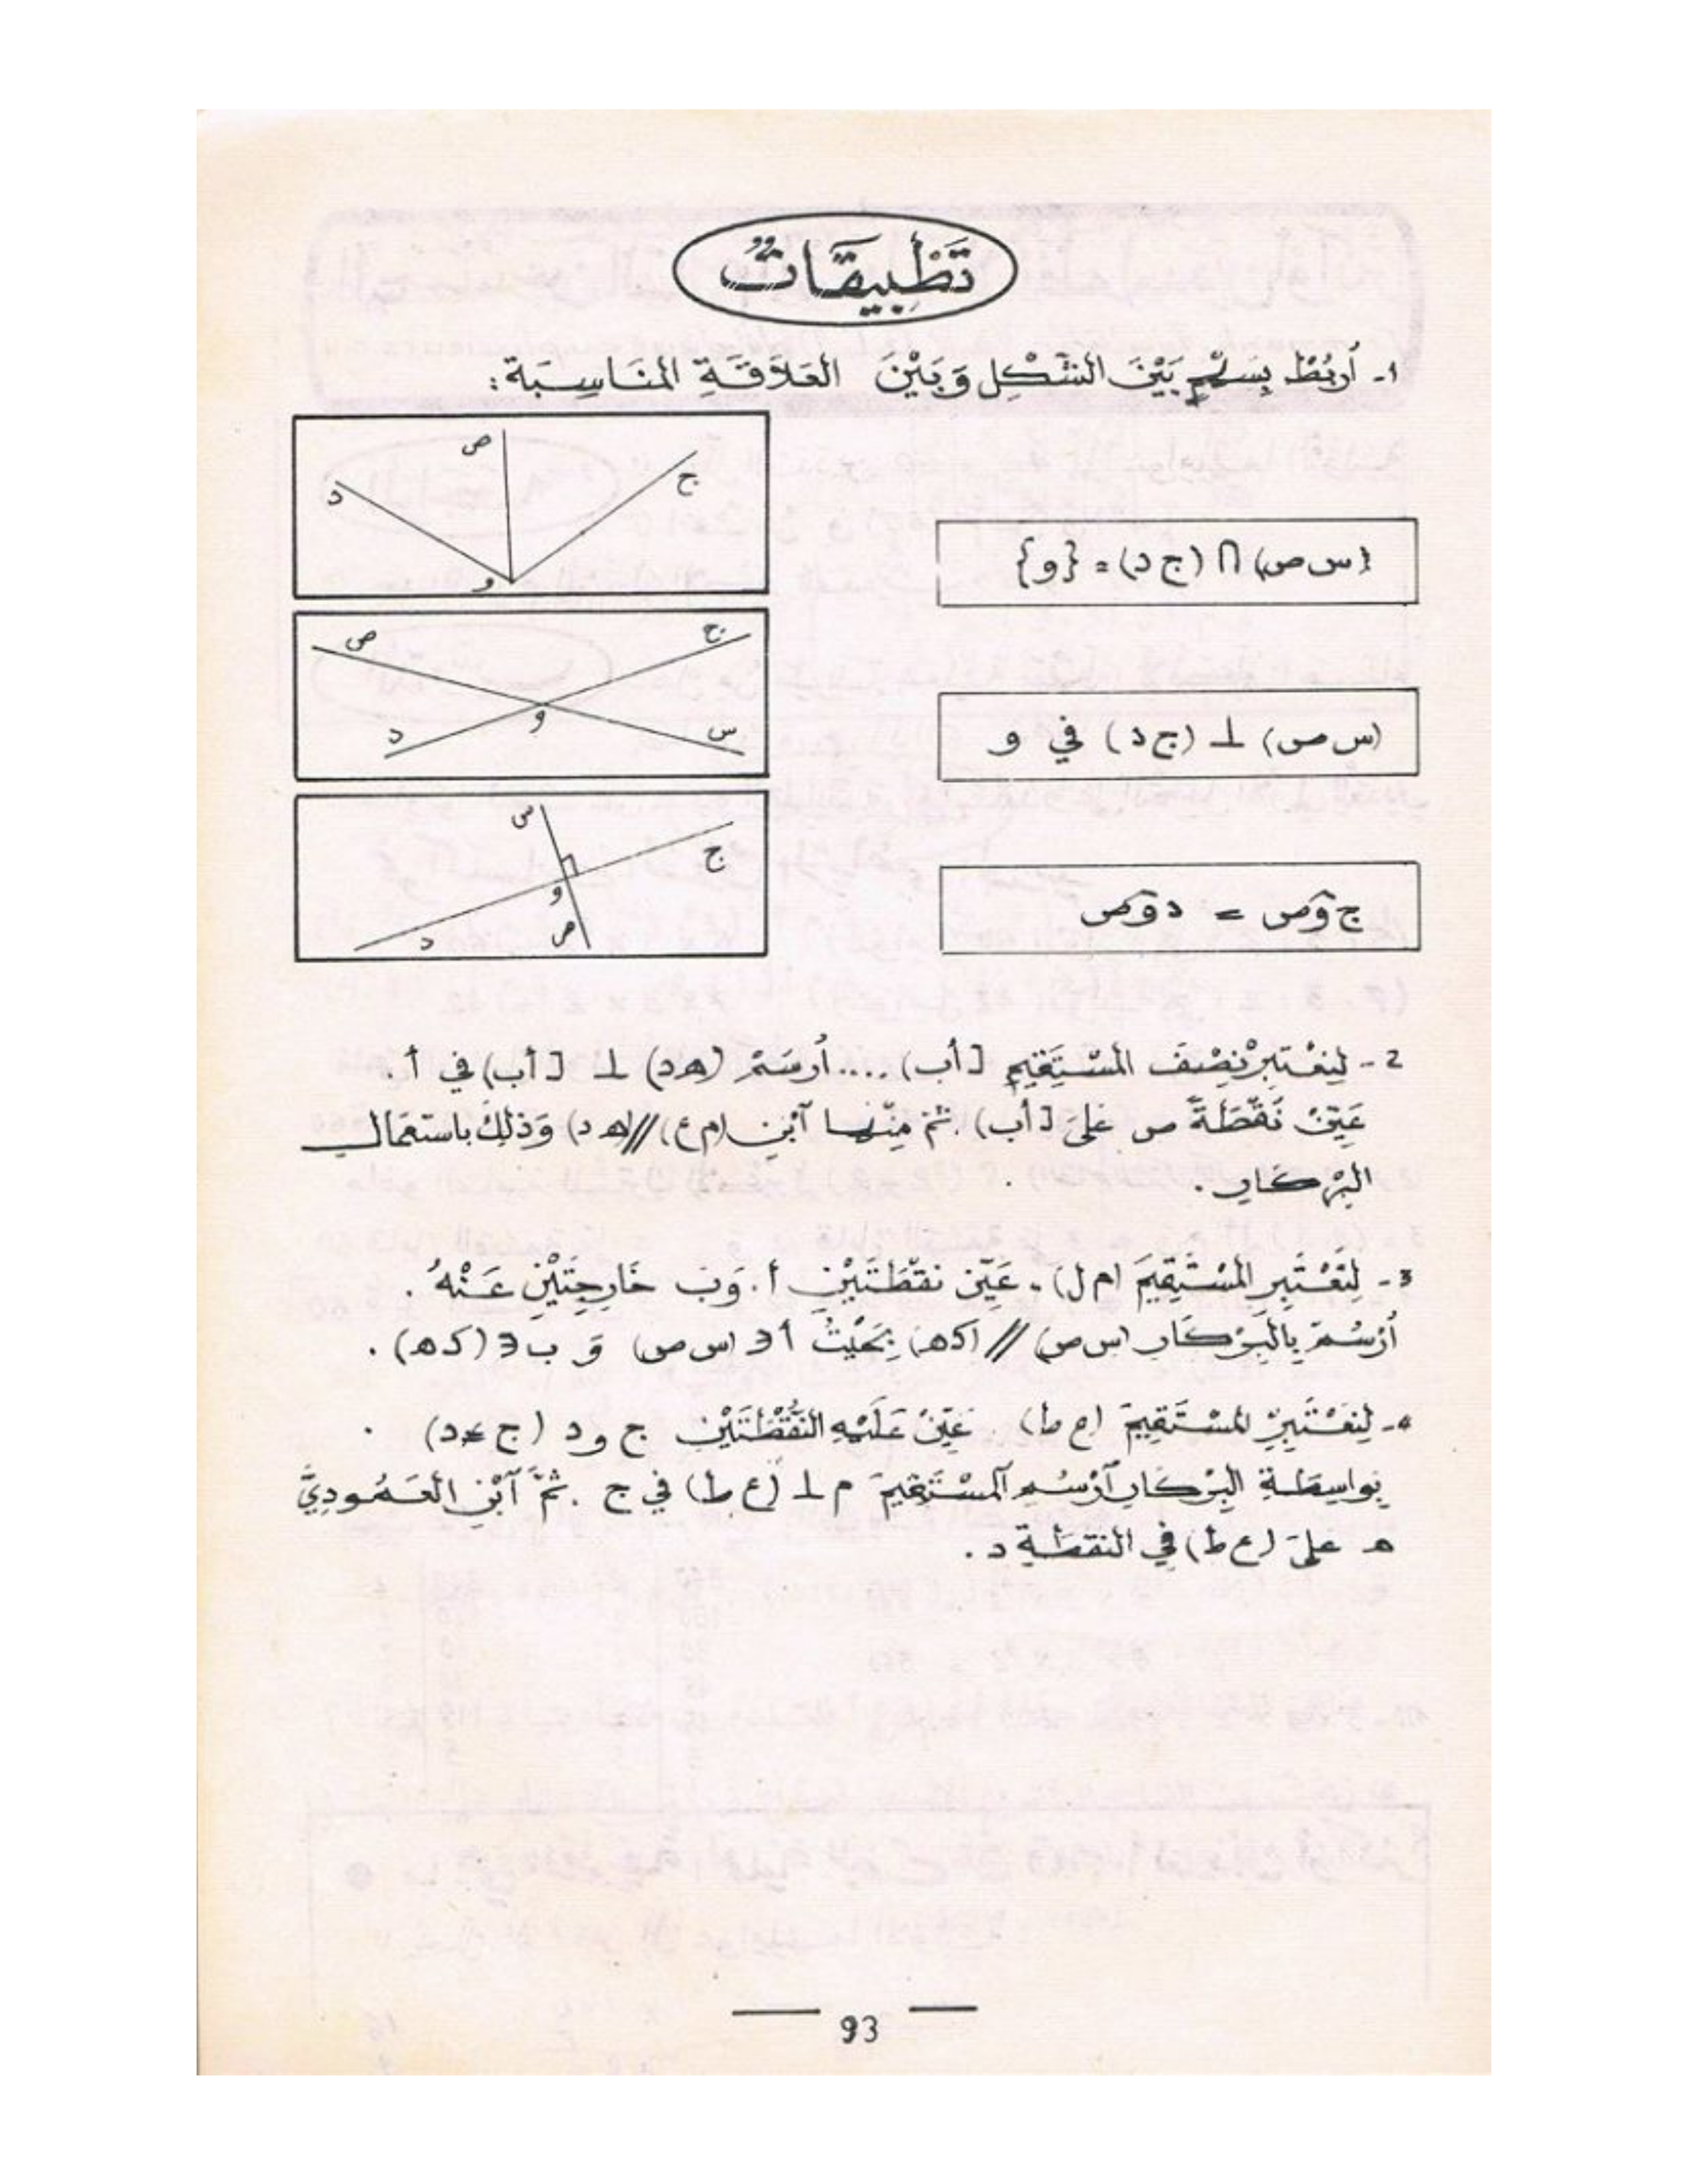 تَطْبِيقَاتٌ
1- أَرْبُطْ بِسَهْمٍ بَيْنَ الشَّكْلِ وَبَيْنَ العَلَاقَةِ المُنَاسِبَةِ:
ص
ج
د
و
(س ص) ∩ (ج د) = {و}
ص
ج
و
د
س
(س ص) ⊥ (ج د) في و
س
ج
و
د
ص
ج و̂ ص = د و̂ ص
2 - لِنَعْتَبِرْ نِصْفَ المُسْتَقِيمِ [أب) .... أُرْسُمْ (ه د) ⊥ [أب) في أ.
عَيِّنْ نُقْطَةً ص عَلَى [أب) . ثُمَّ مِنْهَا آبْنِ (م ع) // (ه د) وَذَلِكَ بِاسْتِعْمَالِ
البِرْكَارِ .
3 - لِنَعْتَبِرِ المُسْتَقِيمَ (م ل) . عَيِّنْ نُقْطَتَيْنِ أ . وَ ب خَارِجَتَيْنِ عَنْهُ .
أُرْسُمْ بِالبِرْكَارِ (س ص) // (ك ه) بِحَيْثُ أ ∋ (س ص) وَ ب ∋ (ك ه) .
4- لِنَعْتَبِرِ المُسْتَقِيمَ (ع ط) عَيِّنْ عَلَيْهِ النُّقْطَتَيْنِ ج و د (ج ≠ د) .
بِوَاسِطَةِ البِرْكَارِ آرْسُمِ المُسْتَقِيمَ م ⊥ (ع ط) في ج . ثُمَّ آبْنِ العَمُودِيَّ
ه على (ع ط) في النقطة د .
93